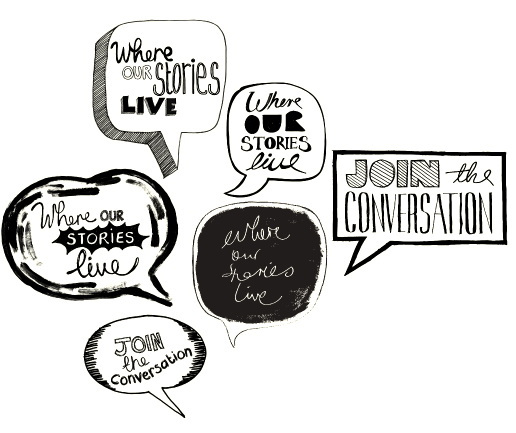 Where
OUR Stories
LIVE
Where
OUR
STORIES
live
JOIN the
CONVERSATION
Where OUR
STORIES
live
Where
our
stories
live
JOIN
the
Conversation